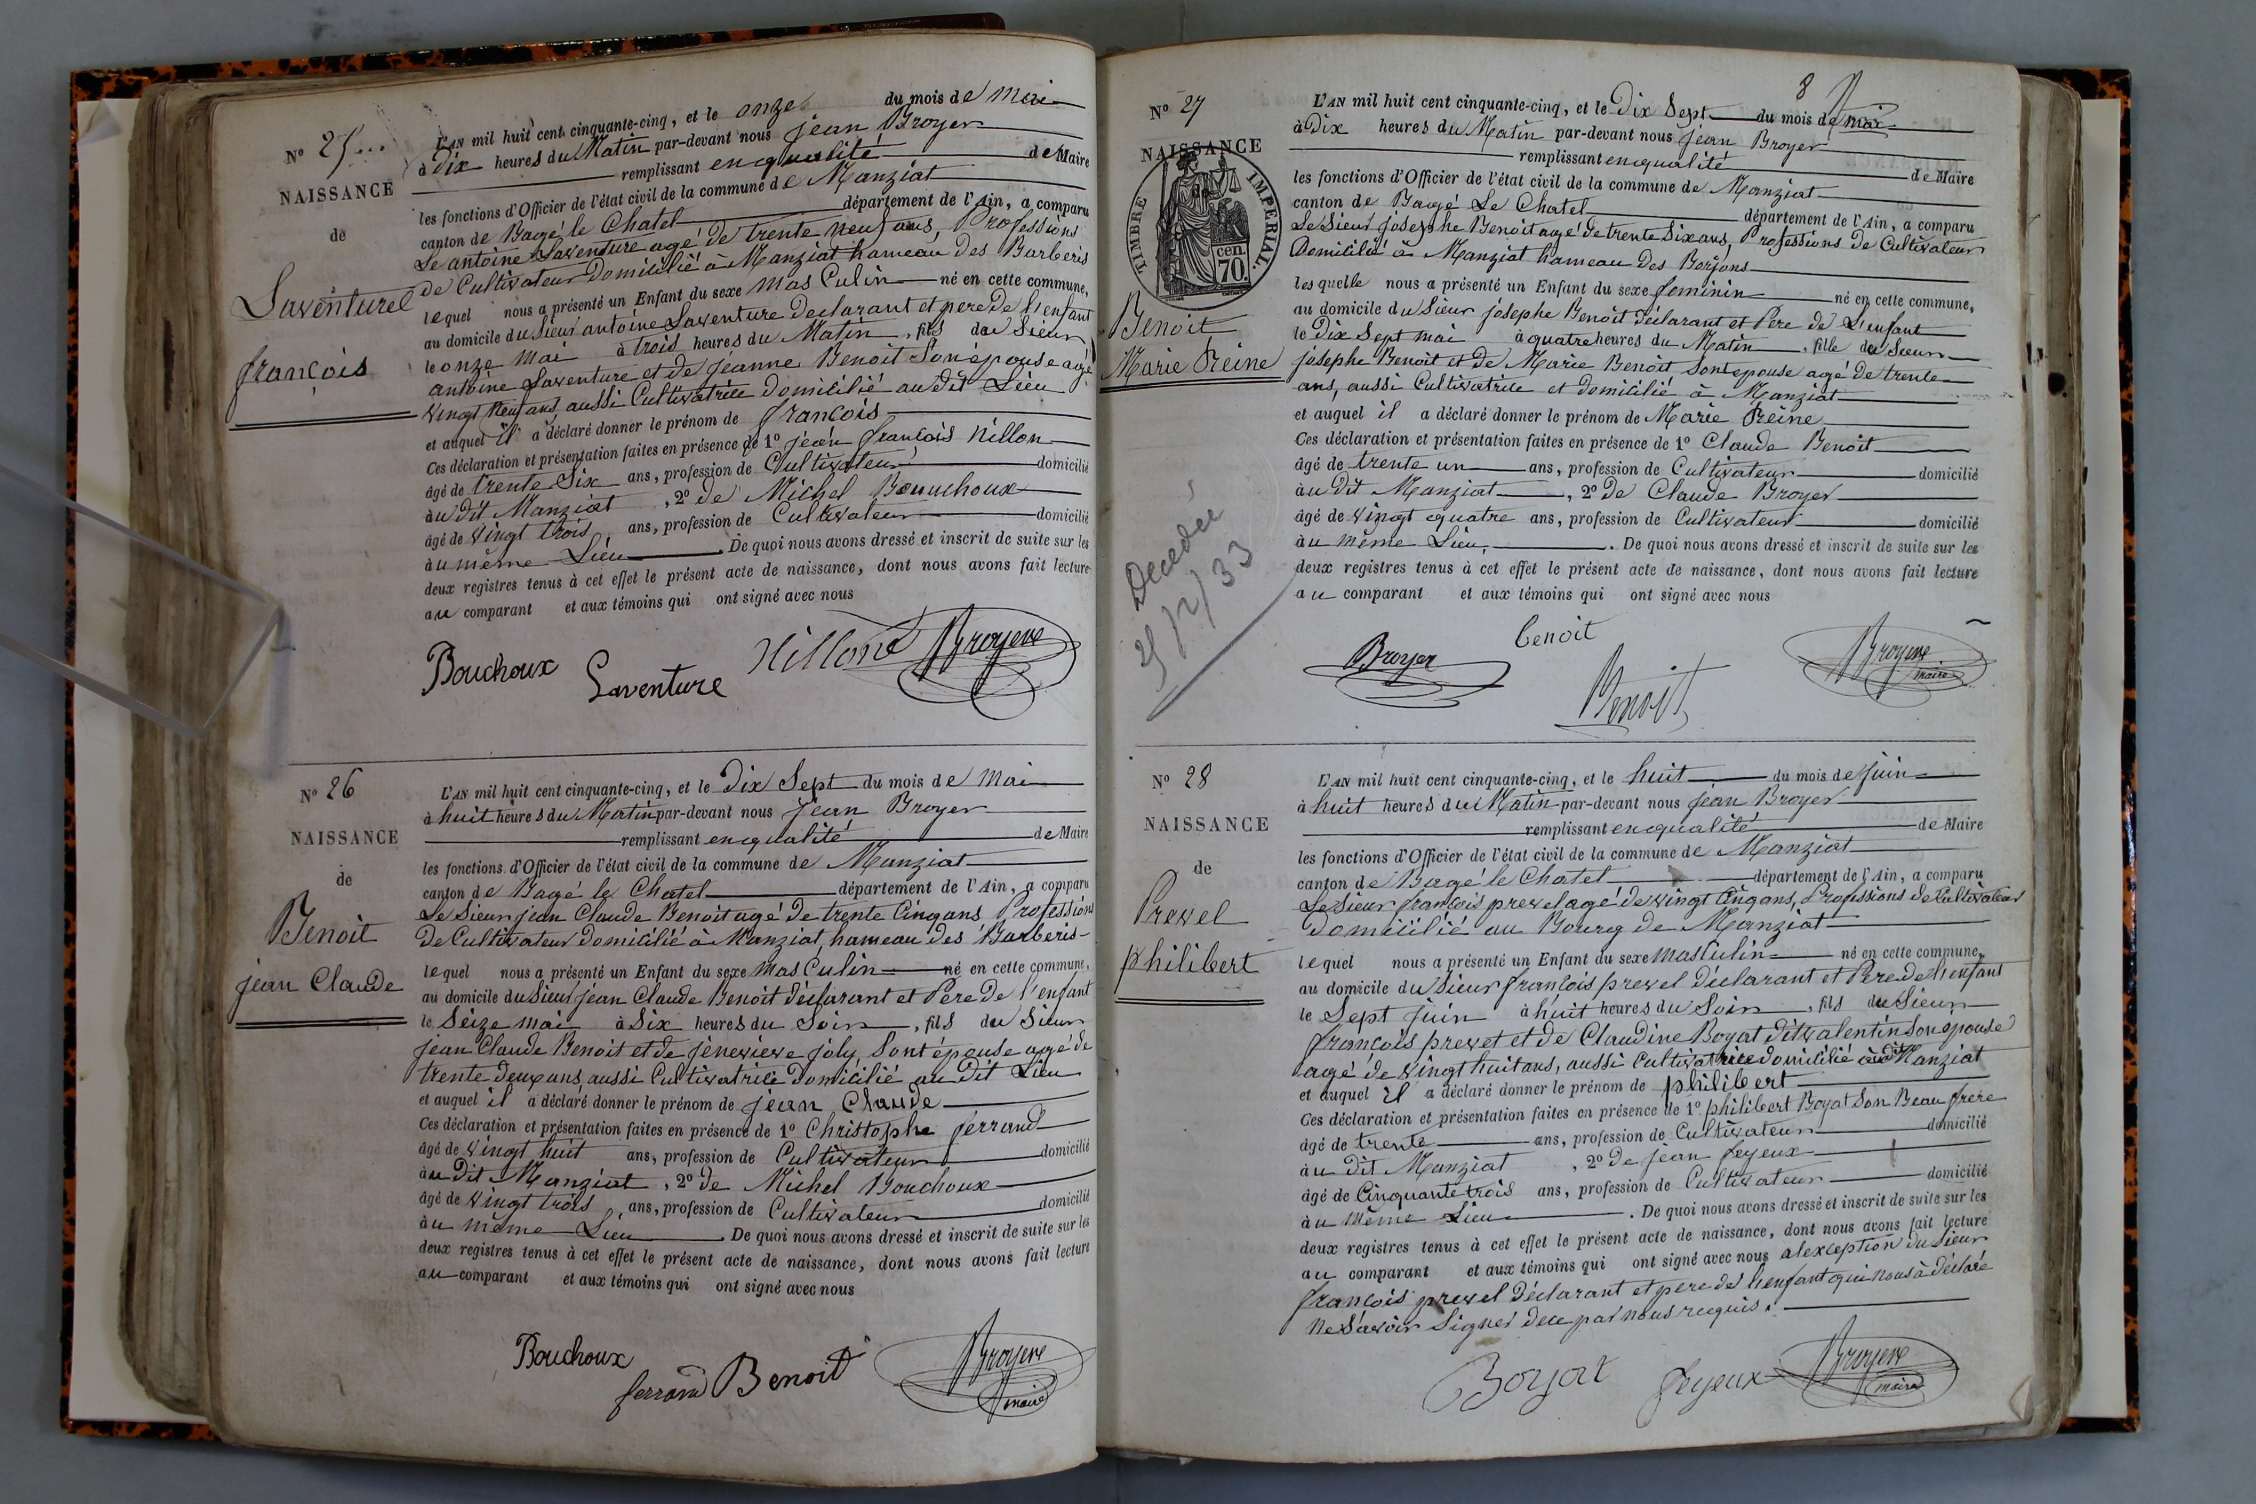 N° 25
NAISSANCE
de
Laventure
françois
L'AN mil huit cent cinquante-cinq, et le onze du mois de Mai
à dix heures du Matin par-devant nous jean Broyer
remplissant en qualité de Maire
les fonctions d'Officier de l'état civil de la commune de Manziat
canton de Bagé le Chatel département de l'Ain, a comparu
Le antoine Laventure agé de trente neuf ans, Professions
de Cultivateur Domicilié à Manziat hameau des Barberis
lequel nous a présenté un Enfant du sexe masCulin né en cette commune,
au domicile du Sieur antoine Laventure Declarant et pere De l'enfant
le onze mai à trois heures du Matin, fils du Sieur
antoine Laventure et de jeanne Benoit Son épouse agé
vingt neuf ans, aussi Cultivatrice domicilié au dit Lieu
et auquel il a déclaré donner le prénom de françois
Ces déclaration et présentation faites en présence de 1° jean françois Nillon
âgé de trente Six ans, profession de Cultivateur domicilié
à u dit Manziat, 2° de Michel Bouchoux
âgé de vingt trois ans, profession de Cultivateur domicilié
à u même Lieu. De quoi nous avons dressé et inscrit de suite sur les
deux registres tenus à cet effet le présent acte de naissance, dont nous avons fait lecture
au comparant et aux témoins qui ont signé avec nous
Bouchoux Laventure Nillond Broyere
N° 26
NAISSANCE
de
Benoit
jean Claude
L'AN mil huit cent cinquante-cinq, et le Dix Sept du mois de Mai
à huit heures du Matin par-devant nous jean Broyer
remplissant en qualité de Maire
les fonctions d'Officier de l'état civil de la commune de Manziat
canton de Bagé le Chatel département de l'Ain, a comparu
Le Sieur jean Claude Benoit agé De trente Cinq ans Professions
De Cultivateur Domicilié à Manziat, hameau des Barberis
lequel nous a présenté un Enfant du sexe masCulin né en cette commune,
au domicile du Sieur jean Claude Benoit Déclarant et Pere De l'enfant
le Seize mai à Six heures du Soir, fils du Sieur
jean Claude Benoit et de jènevieve joly, Sont épouse agé de
trente deux ans, aussi Cultivatrice Domicilié au Dit Lieu
et auquel il a déclaré donner le prénom de jean Claude
Ces déclaration et présentation faites en présence de 1° Christophe ferrand
âgé de vingt huit ans, profession de Cultivateur domicilié
à u Dit Manziat, 2° De Michel Bouchoux
âgé de vingt trois ans, profession de Cultivateur domicilié
à u même Lieu. De quoi nous avons dressé et inscrit de suite sur les
deux registres tenus à cet effet le présent acte de naissance, dont nous avons fait lecture
au comparant et aux témoins qui ont signé avec nous
Bouchoux
ferrand Benoit Broyere
maire
8
N° 27
NAISSANCE
de
TIMBRE IMPERIAL.
70.
cen.
Benoit
Marie Reine
Decedée
25/12/33
L'AN mil huit cent cinquante-cinq, et le Dix Sept du mois de mai
à Dix heures du Matin par-devant nous jean Broyer
remplissant en qualité de Maire
les fonctions d'Officier de l'état civil de la commune de Manziat
canton de Bagé Le Chatel département de l'Ain, a comparu
Le Sieur josephe Benoit agé de trente Six ans, Professions de Cultivateur
Domicilié à Manziat hameau Des Borjons
lesquelle nous a présenté un Enfant du sexe feminin né en cette commune,
au domicile du Sieur josephe Benoit Déclarant et Pere de L'enfant
le Dix Sept mai à quatre heures du Matin, fille du Sieur
josephe Benoit et de Marie Benoit Sont epouse agé de trente
ans, aussi Cultivatrice et domicilié à Manziat
et auquel il a déclaré donner le prénom de Marie Reine
Ces déclaration et présentation faites en présence de 1° Claude Benoit
âgé de trente un ans, profession de Cultivateur domicilié
à u dit Manziat, 2° De Claude Broyer
âgé de vingt quatre ans, profession de Cultivateur domicilié
à u même Lieu. De quoi nous avons dressé et inscrit de suite sur les
deux registres tenus à cet effet le présent acte de naissance, dont nous avons fait lecture
au comparant et aux témoins qui ont signé avec nous
Broyer benoit Benoit Broyere
maire
N° 28
NAISSANCE
de
Prevel
philibert
L'AN mil huit cent cinquante-cinq, et le huit du mois de juin
à huit heures du Matin par-devant nous jean Broyer
remplissant en qualité de Maire
les fonctions d'Officier de l'état civil de la commune de Manziat
canton de Bagé le Chatel département de l'Ain, a comparu
Le Sieur françois prevel agé de vingt Cinq ans, Professions de Cultivateur
Domicilié au Bourg de Manziat
lequel nous a présenté un Enfant du sexe masCulin né en cette commune,
au domicile du Sieur françois prevel Déclarant et Pere de l'enfant
le Sept juin à huit heures du Soir, fils du Sieur
françois prevet et de Claudine Boyat dit valentin Son epouse
agé de vingt huit ans, aussi Cultivatrice domicilié au dit Manziat
et auquel il a déclaré donner le prénom de philibert
Ces déclaration et présentation faites en présence de 1° philibert Boyat Son Beau frere
âgé de trente ans, profession de Cultivateur domicilié
à u Dit Manziat, 2° De jean feyeux
âgé de Cinquante trois ans, profession de Cultivateur domicilié
à u même Lieu. De quoi nous avons dressé et inscrit de suite sur les
deux registres tenus à cet effet le présent acte de naissance, dont nous avons fait lecture
au comparant et aux témoins qui ont signé avec nous alexception du Sieur
françois prevel Déclarant et pere de l'enfant qui nous à déclaré
ne Savoir Signer de ce par nous requis.
Boyat feyeux Broyere
maire